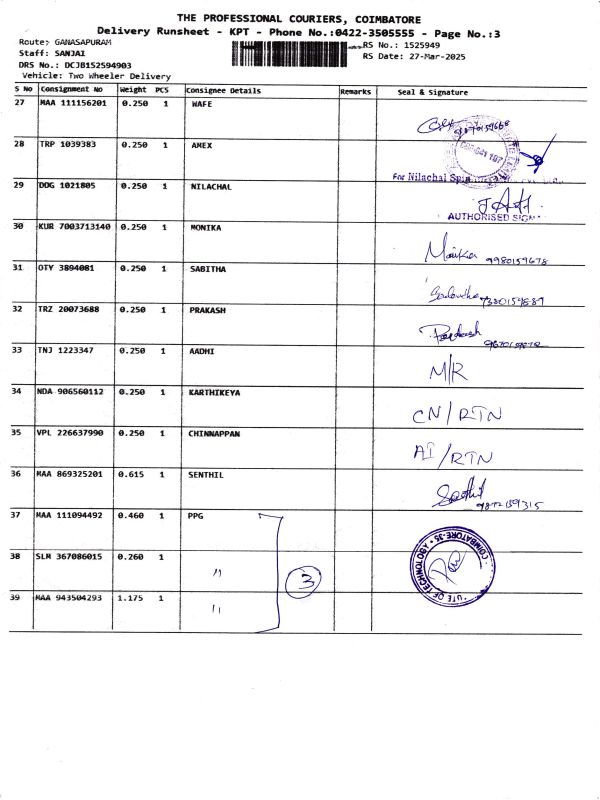 THE PROFESSIONAL COURIERS, COIMBATORE
Delivery Runsheet - KPT - Phone No.:0422-3505555 - Page No.:3
Route: GANASAPURAM
Staff: SANJAI
DRS No.: DCJB152594903
Vehicle: Two Wheeler Delivery
RS No.: 1525949
RS Date: 27-Mar-2025
S No Consignment No Weight PCS Consignee Details Remarks Seal & Signature
27 MAA 111156201 0.250 1 WAFE
28 TRP 1039383 0.250 1 AMEX
For Nilachal
29 DDG 1021805 0.250 1 NILACHAL
AUTHORISED SIGN
30 KUR 7003713140 0.250 1 MONIKA
Monika 9980159678
31 OTY 3894081 0.250 1 SABITHA
32 TRZ 20073688 0.250 1 PRAKASH
Prakash
33 TNJ 1223347 0.250 1 AADHI
M/R
34 NDA 906560112 0.250 1 KARTHIKEYA
CN/RTN
35 VPL 226637990 0.250 1 CHINNAPPAN
AI/RTN
36 MAA 869325201 0.615 1 SENTHIL
Senthil
37 MAA 111094492 0.460 1 PPG
38 SLM 367086015 0.260 1 "
3
39 MAA 943504293 1.175 1 "
UTE OF TECHNOLOGY * COIMBATORE-35